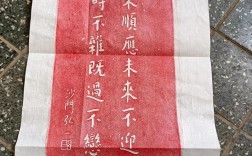 來順應未來不迎
時不雜既過不戀
沙門弘一